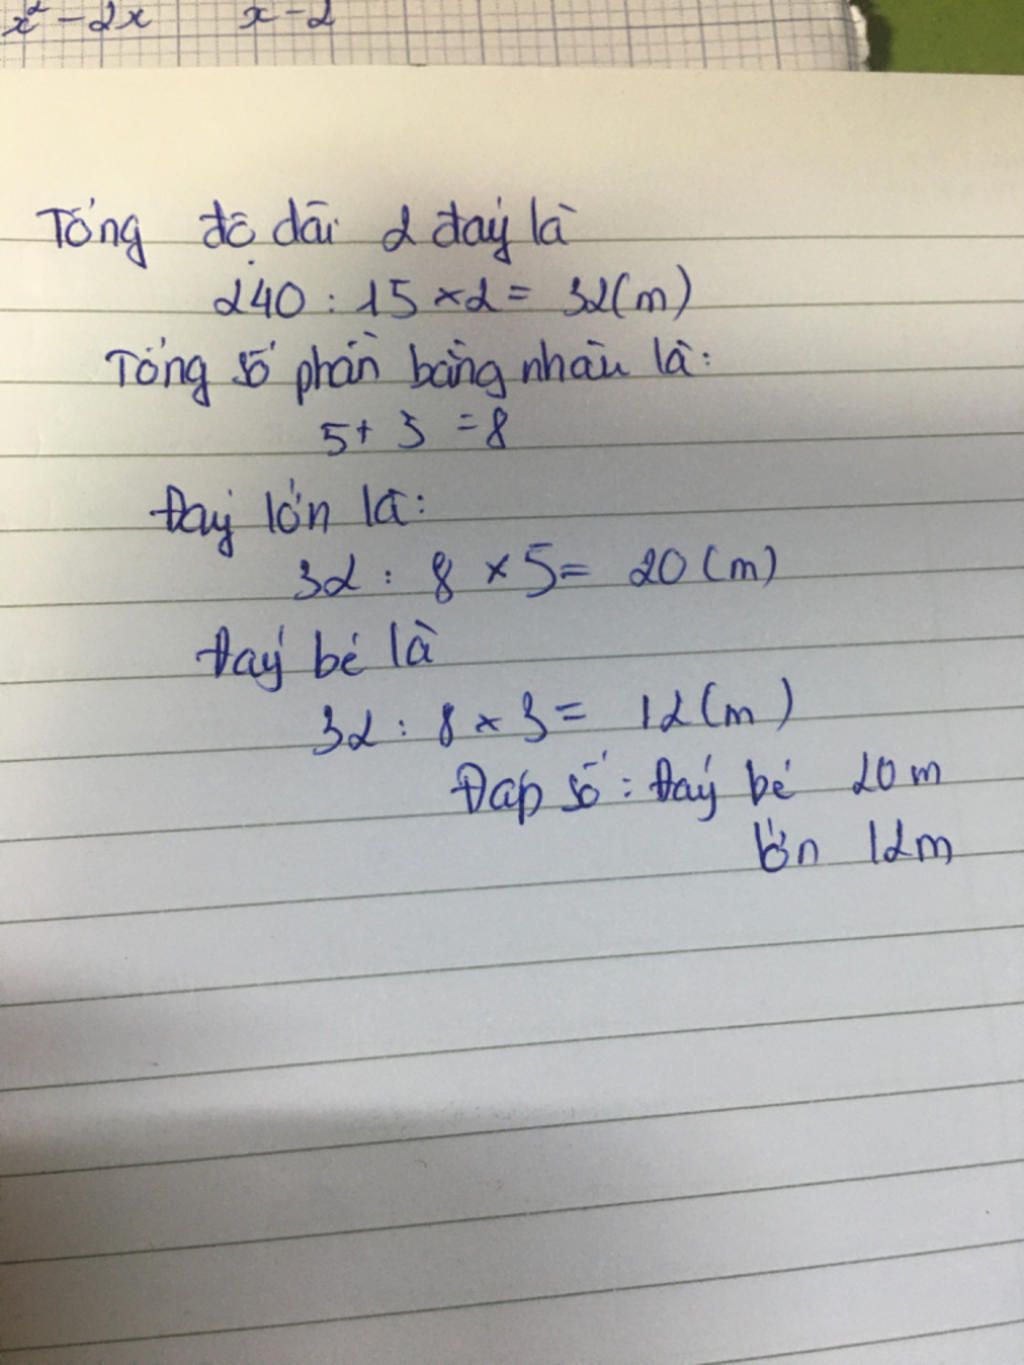 x² - 2x x - 2
Tổng độ dài 2 đáy là
240 : 15 × 2 = 32 (m)
Tổng số phần bằng nhau là:
5 + 3 = 8
Đáy lớn là:
32 : 8 × 5 = 20 (m)
Đáy bé là
32 : 8 × 3 = 12 (m)
Đáp số : Đáy bé 20 m
lớn 12m